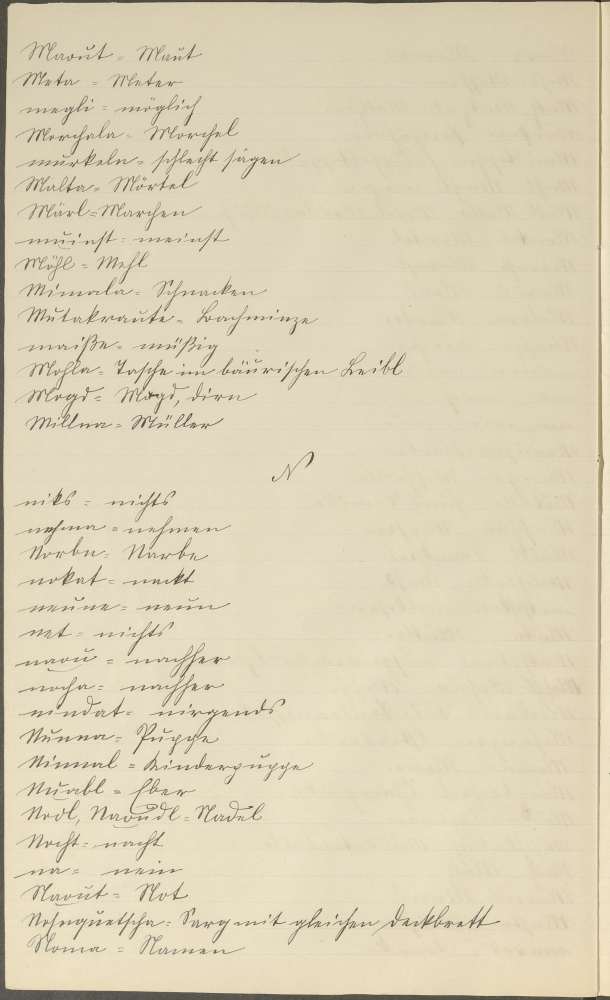 Maout = Maut
Meta = Meter
megli = möglich
Morchala = Morchel
murkeln = schlecht sägen
Malta = Mörtel
Märl = Märchen
muinst = meinst
Möhl = Mehl
Mimala = Schnacken
Mutakraute = Bachminze
maiße = müßig
Mohla = Tasche im bäurischen Leibl
Mogd = Magd, Dirn
Millna = Müller
N
niks = nichts
nehma = nehmen
Norbn = Narbe
nokat = nackt
neune = neun
net = nichts
naou = nachher
nocha = nachher
nindat = nirgends
Nunna = Puppe
Ninnal = Kinderpuppe
Nuabl = Eber
Nodl, Naoudl = Nadel
Nocht = nacht
na = nein
Naout = Not
Nosnquetscha = Sarg mit gleichen Deckbrett
Noma = Namen